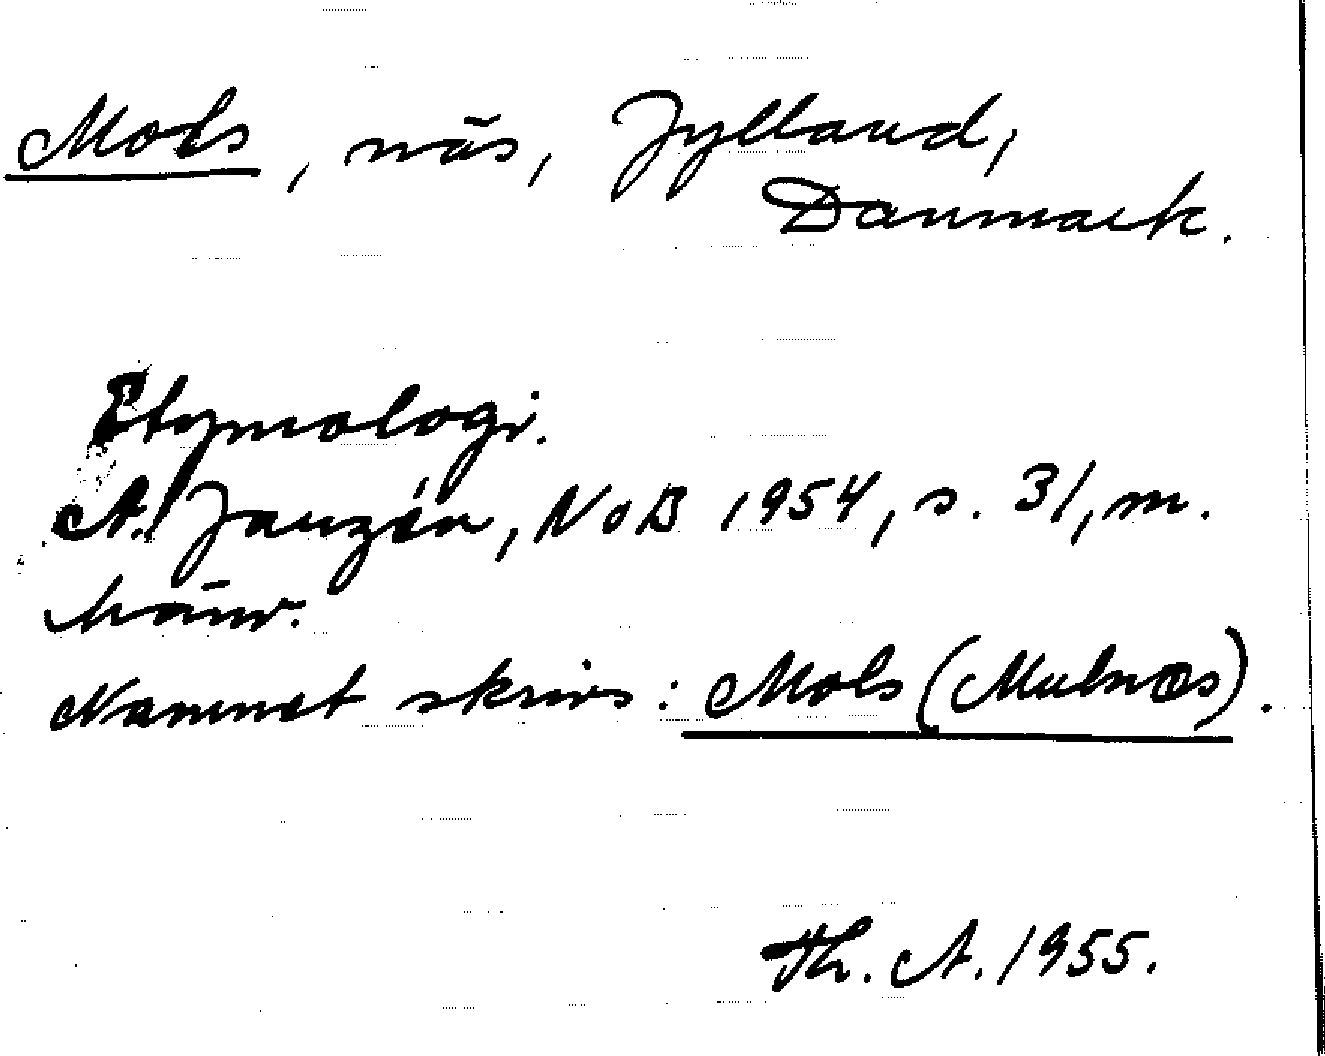 Mols, näs, Jylland,
Danmark.
Etymologi.
A. Janzén, NoB 1954, s. 31, m.
hänv.
Namnet skrivs: Mols (Mulnæs).
Th. A. 1955.